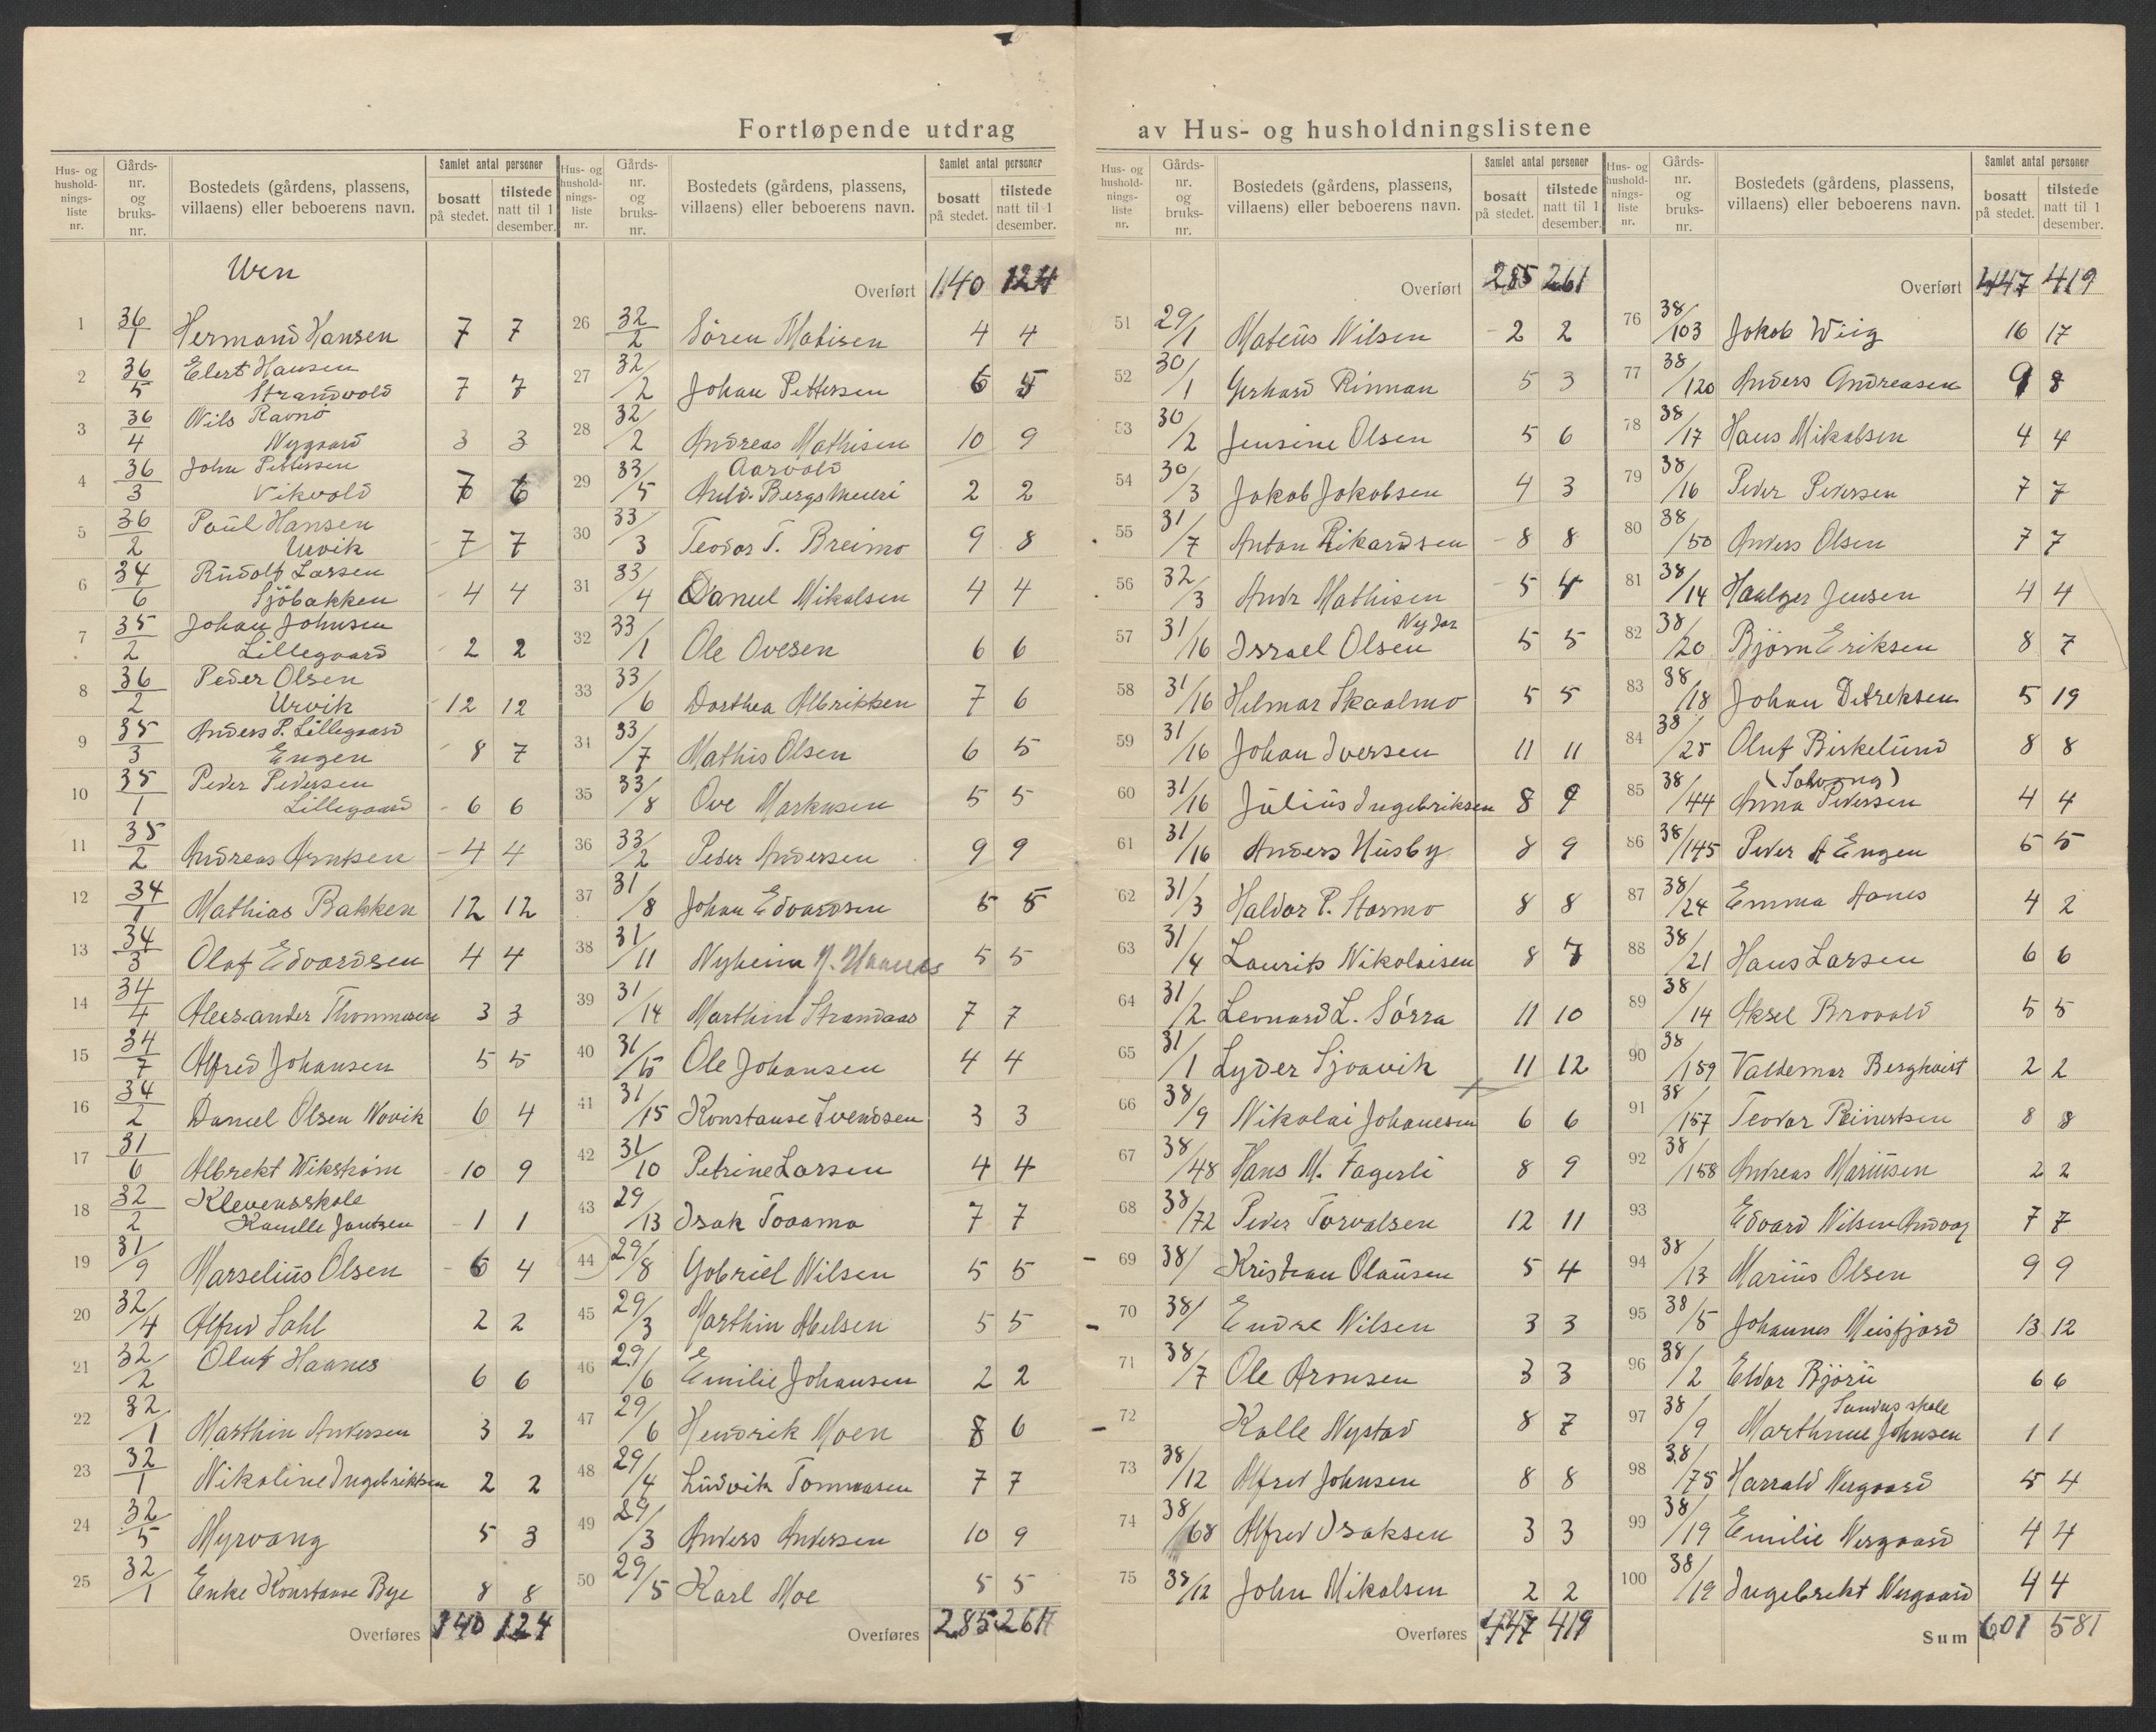 Fortløpende utdrag av Hus- og husholdningslistene
Hus- og husholdningsliste nr. Gårds-nr. og bruks-nr. Bostedets (gårdens, plassens, villaens) eller beboerens navn. Samlet antal personer bosatt på stedet. tilstede natt til 1 desember.
Uren
1 36/1 Hermand Hansen 7 7
2 36/5 Elert Hansen
Strandvold 7 7
3 36/4 Nils Ravnå
Nygaard 3 3
4 36/3 John Pettersen
Vikvold 7 6
5 36/2 Paul Hansen
Urvik 7 7
6 34/6 Rudolf Larsen
Sjöbakken 4 4
7 35/2 Johan Johnsen
Lillegaard 2 2
8 36/2 Peder Olsen
Urvik 12 12
9 35/3 Anders P. Lillegaard
Engen 8 7
10 35/1 Peder Pedersen
Lillegaard 6 6
11 35/2 Andreas Arntsen 4 4
12 34/1 Mathias Bakken 12 12
13 34/3 Olaf Edvardsen 4 4
14 34/4 Aleksander Thommesen 3 3
15 34/7 Alfred Johansen 5 5
16 34/2 Daniel Olsen Novik 6 4
17 31/6 Albrekt Wikström 10 9
18 32/2 Klevenskole
Kamille Jentzen 1 1
19 31/9 Marselius Olsen 6 4
20 32/4 Alfred Dahl 2 2
21 32/2 Oluf Haanes 6 6
22 32/1 Marthin Andersen 3 2
23 32/1 Nikoline Ingebriktsen 2 2
24 32/5 Myrvang 5 3
25 32/1 Enke Konstanse Bye 8 8
Overføres 140 124
Hus- og husholdningsliste nr. Gårds-nr. og bruks-nr. Bostedets (gårdens, plassens, villaens) eller beboerens navn. Samlet antal personer bosatt på stedet. tilstede natt til 1 desember.
Overført 140 124
26 32/2 Sören Matisen 4 4
27 32/2 Johan Pettersen 6 5
28 32/2 Andreas Mathisen 10 9
29 33/5 Aarvold
Bergs Meieri 2 2
30 33/3 Teodor T. Breimo 9 8
31 33/4 Daniel Mikalsen 4 4
32 33/1 Ole Ovesen 6 6
33 33/6 Dorthea Albriktsen 7 6
34 33/7 Mathis Olsen 6 5
35 33/8 Ove Markusen 5 5
36 33/2 Peder Andersen 9 9
37 31/8 Johan Edvardsen 5 5
38 31/11 Nyheim N. Haanes 5 5
39 31/14 Marthin Strandaas 7 7
40 31/15 Ole Johansen 4 4
41 31/15 Konstanse Svendsen 3 3
42 31/10 Petrine Larsen 4 4
43 29/13 Isak Toaamo 7 7
44 29/8 Gabriel Nilsen 5 5
45 29/3 Marthin Abelsen 5 5
46 29/6 Emilie Johansen 2 2
47 29/6 Hendrik Moen 8 6
48 29/4 Ludvik Tommasen 7 7
49 29/3 Anders Andersen 10 9
50 29/5 Karl Moe 5 5
Overføres 285 261
Hus- og husholdningsliste nr. Gårds-nr. og bruks-nr. Bostedets (gårdens, plassens, villaens) eller beboerens navn. Samlet antal personer bosatt på stedet. tilstede natt til 1 desember.
Overført 285 261
51 29/1 Mateus Nilsen 2 2
52 30/1 Gerhard Rinnan 5 3
53 30/2 Jensine Olsen 5 6
54 30/3 Jakob Jakobsen 4 3
55 31/7 Anton Rikardsen 8 8
56 32/3 Andr Mathisen 5 4
57 31/16 Israel Olsen 5 5
58 31/16 Hilmar Skaalmo 5 5
59 31/16 Johan Iversen 11 11
60 31/16 Julius Ingebriksen 8 9
61 31/16 Anders Husby 8 9
62 31/3 Haldor P. Stormo 8 8
63 31/4 Laurits Nikolaisen 8 7
64 31/2 Leonard L. Sörra 11 10
65 31/1 Lyder Sjoavik 11 12
66 38/9 Nikolai Johanesen 6 6
67 38/48 Hans M. Fagerli 8 9
68 38/72 Peder Torvalsen 12 11
69 38/ Kristian Olausen 5 4
70 38/ Endre Nilsen 3 3
71 38/7 Ole Aronsen 3 3
72 Kalle Nystad 8 7
73 38/12 Alfred Johnsen 8 8
74 38/68 Alfred Isaksen 3 3
75 38/12 John Mikalsen 2 2
Overføres 447 419
Hus- og husholdningsliste nr. Gårds-nr. og bruks-nr. Bostedets (gårdens, plassens, villaens) eller beboerens navn. Samlet antal personer bosatt på stedet. tilstede natt til 1 desember.
Overført 447 419
76 38/103 Jakob Wiig 16 17
77 38/120 Anders Andreasen 9 8
78 38/17 Hans Mikalsen 4 4
79 38/16 Peder Pedersen 7 7
80 38/50 Anders Olsen 7 7
81 38/14 Haalger Jensen 4 4
82 38/20 Björn Eriksen 8 7
83 38/18 Johan Detreksen 5 19
84 38/25 Oluf Birkelund 8 8
85 38/44 (Solvang)
Anna Pedersen 4 4
86 38/145 Peder A Engen 5 5
87 38/24 Emma Aanes 4 2
88 38/21 Hans Larsen 6 6
89 38/14 Aksel Brovold 5 5
90 38/159 Valdemar Berghvist 2 2
91 38/157 Teodor Reinertsen 8 8
92 38/158 Andreas Mariusen 2 2
93 Edvard Nilsen Andvag 7 7
94 38/13 Marius Olsen 9 9
95 38/5 Johannes Meisfjord 13 12
96 38/2 Eldor Björü 6 6
97 38/9 Sandnes skole
Marthine Johnsen 1 1
98 38/75 Harrald Nergaard 5 4
99 38/19 Emilie Nergaard 4 4
100 38/19 Ingebrekt Nergaard 4 4
Sum 601 581